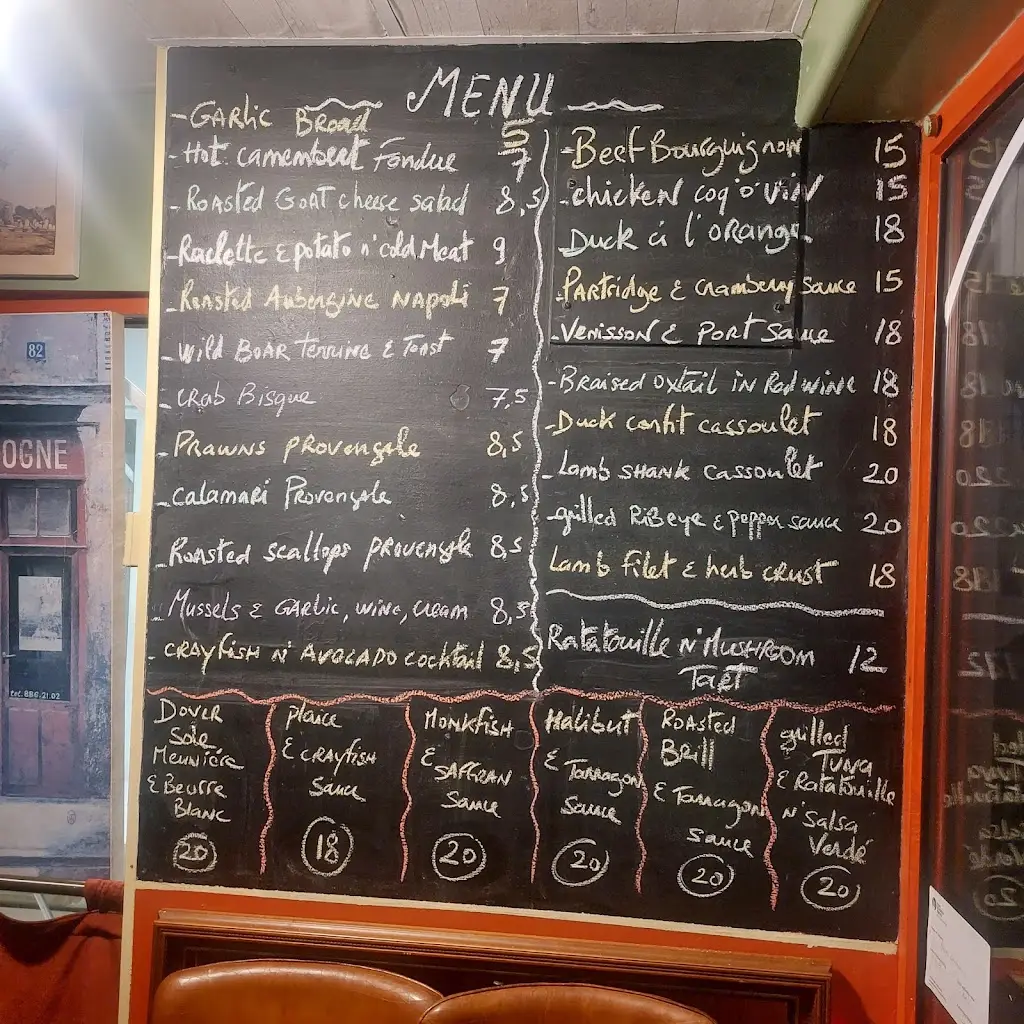 MENU
- GARlic Bread 5
- Hot camembert Fondue 7
- ROASTED GOAT cheese salad 8,5
- Raclette & potato n' cold Meat 9
- Roasted Aubergine NAPoli 7
- Wild BOAR TERRINE & Toast 7
- CRab Bisque 7,5
- PRAWNS PROVENçale 8,5
- calamari Provençale 8,5
- Roasted scallops PROVENçale 8,5
- Mussels & GARlic, wine, cream 8,5
- CRAYfisH N' AVOCADO cocktail 8,5
- Beef Bourguignon 15
- chicken coq o' viN 15
- Duck à l'ORange 18
- PARTRidge & Cramberry sauce 15
- Venisson & PORT Sauce 18
- Braised oxtail in Red wine 18
- Duck confit cassoulet 18
- Lamb SHANK Cassoulet 20
- grilled RiBeye & pepper sauce 20
Lamb filet & herb crust 18
Ratatouille N' MUSHROOM 12
TaRT
DOVER
Sole
Meunière
& Beurre
Blanc
20
plaice
& CRAYfisH
Sauce
18
MonkFisH
&
SAFFRAN
Sauce
20
Halibut
&
Tarragon
Sauce
20
ROASTED
BRill
& Tarragon
sauce
20
grilled
Tuna
& Ratatouille
N' Salsa
Verdé
20
82
OGNE
tel. 886.21.02